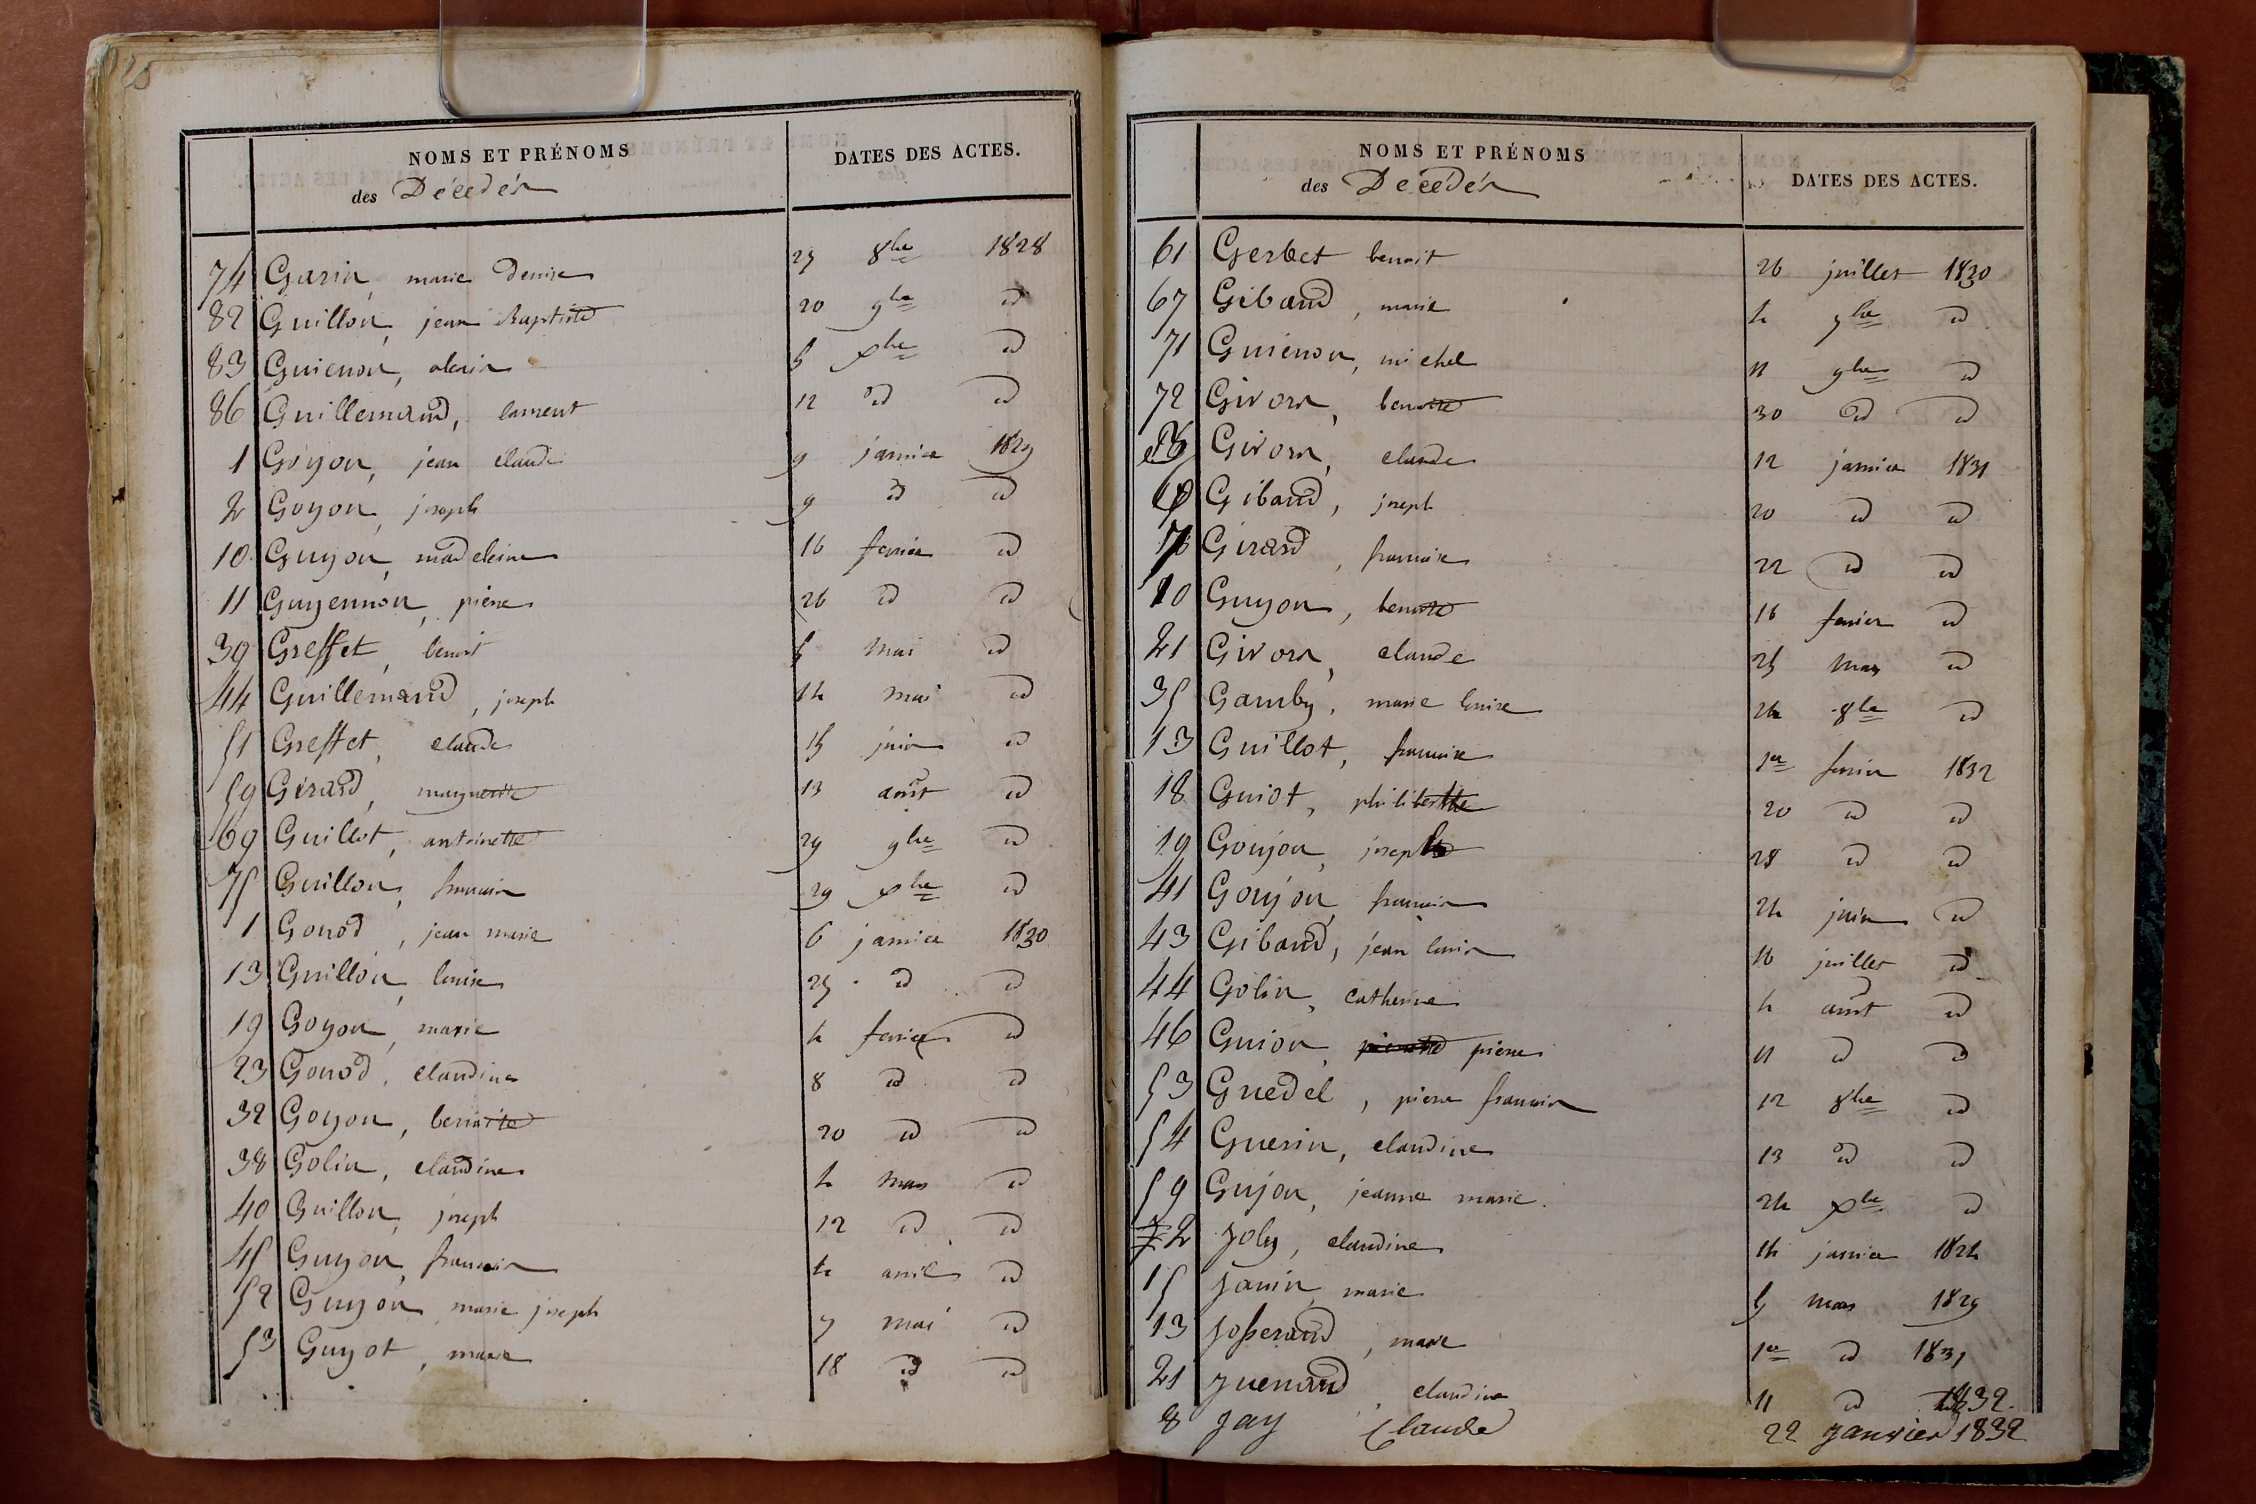 NOMS ET PRÉNOMS
des Décédés
DATES DES ACTES.
74 Garin, marie Denise 27 8bre 1828
82 Guillon, jean Baptiste 20 9bre id
83 Guienon, alexis 5 xbre id
86 Guillemaud, laurent 12 id id
1 Goyon, jean claude 9 janvier 1829
2 Goyon, joseph 9 id id
10 Guyon, madeleine 16 fevrier id
11 Guyennon, pierre 26 id id
39 Greffet, benoit 5 mai id
44 Guillemaud, joseph 14 mai id
51 Greffet, claude 15 juin id
59 Gérard, marguerite 13 août id
69 Guillot, antoinette 29 9bre id
75 Guillon, francois 29 xbre id
1 Gonod, jean marie 6 janvier 1830
13 Guillon, louise 25 id id
19 Goyon, marie 4 fevrier id
23 Gonod, claudine 8 id id
32 Goyon, benoite 20 id id
38 Golin, claudine 4 mars id
40 Guillon, joseph 12 id id
45 Guyon, francois 4 avril id
52 Guyon, marie joseph 7 mai id
53 Guyot, marie 18 id id
NOMS ET PRÉNOMS
des Décédés
DATES DES ACTES.
61 Gerbet benoit 26 juillet 1830
67 Giband, marie 4 7bre id
71 Guienon, michel 11 9bre id
72 Givors, benoite 30 id id
Givors, claude 12 janvier 1831
Giband, joseph 20 id id
Girard, francoise 22 id id
10 Guyon, benoite 16 fevrier id
21 Givors, claude 25 mars id
35 Gamby, marie louise 24 8bre id
13 Guillot, francoise 1er fevrier 1832
18 Guiot, philiberthe 20 id id
19 Goujon, joseph 28 id id
41 Goujon, francois 24 juin id
43 Giband, jean louis 16 juillet id
44 Golin, catherine 4 août id
46 Guion, pierre 11 id id
53 Guedel, pierre francois 12 8bre id
54 Guerin, claudine 13 id id
59 Gujon, jeanne marie. 24 xbre id
2 Joly, claudine 14 janvier 1824
15 Janin, marie 5 mars 1829
13 Josserand, marie 1er id 1831
21 Juenand, claudine 11 id 1832.
8 Jay Claude 22 Janvier 1832